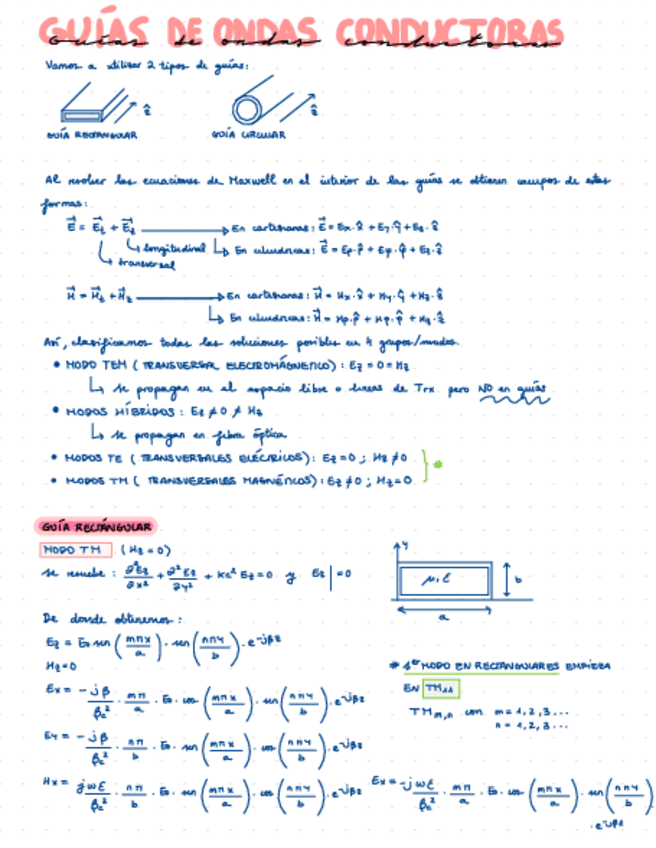 GUÍAS DE ONDAS CONDUCTORAS
Vamos a utilizar 2 tipos de guías:
ẑ
ẑ
GUÍA RECTANGULAR
GUÍA CIRCULAR
Al resolver las ecuaciones de Maxwell en el interior de las guías se obtienen campos de estas
formas:
E⃗ = E⃗t + E⃗z → En cartesianas: E⃗ = Ex·x̂ + Ey·ŷ + Ez·ẑ
↳ longitudinal ↳ En cilíndricas: E⃗ = Eρ·ρ̂ + Eφ·φ̂ + Ez·ẑ
↳ transversal
H⃗ = H⃗t + H⃗z → En cartesianas: H⃗ = Hx·x̂ + Hy·ŷ + Hz·ẑ
↳ En cilíndricas: H⃗ =
Así, clasificamos todas las soluciones posibles en 4 grupos/modos.
• MODO TEM (TRANSVERSAL ELECTROMÁGNETICO): Ez = 0 = Hz
↳ se propagan en el espacio libre o líneas de Trx pero NO en guías
• MODOS HÍBRIDOS: Ez ≠ 0 ≠ Hz
↳ se propagan en fibra óptica
• MODOS TE (TRANSVERSALES ELÉCTRICOS): Ez = 0 ; Hz ≠ 0
• MODOS TM (TRANSVERSALES MAGNÉTICOS): Ez ≠ 0 ; Hz = 0
} *
GUÍA RECTÁNGULAR
MODO TM (Hz = 0)
se resuelve: ∂²Ez/∂x² + ∂²Ez/∂y² + kc² Ez = 0 y Ez| = 0
y
μ, ε
b
a
De donde obtenemos:
Ez = E0 sen (mπx/a) · sen (nπy/b) · e^-jβz
Hz = 0
Ex = -jβ/βc² · mπ/a · E0 · cos (mπx/a) · sen (nπy/b) · e^-jβz
Ey = -jβ/βc² · nπ/b · E0 · sen (mπx/a) · cos (nπy/b) · e^-jβz
Hx = jωε/βc² · nπ/b · E0 · sen (mπx/a) · cos (nπy/b) · e^-jβz
* 1er MODO EN RECTANGULARES EMPIEZA
EN TM11
TMm,n con m = 1, 2, 3...
n = 1, 2, 3...
Ex = -jωε/βc² · mπ/a · E0 · cos (mπx/a) · sen (nπy/b)
· e^-jβz